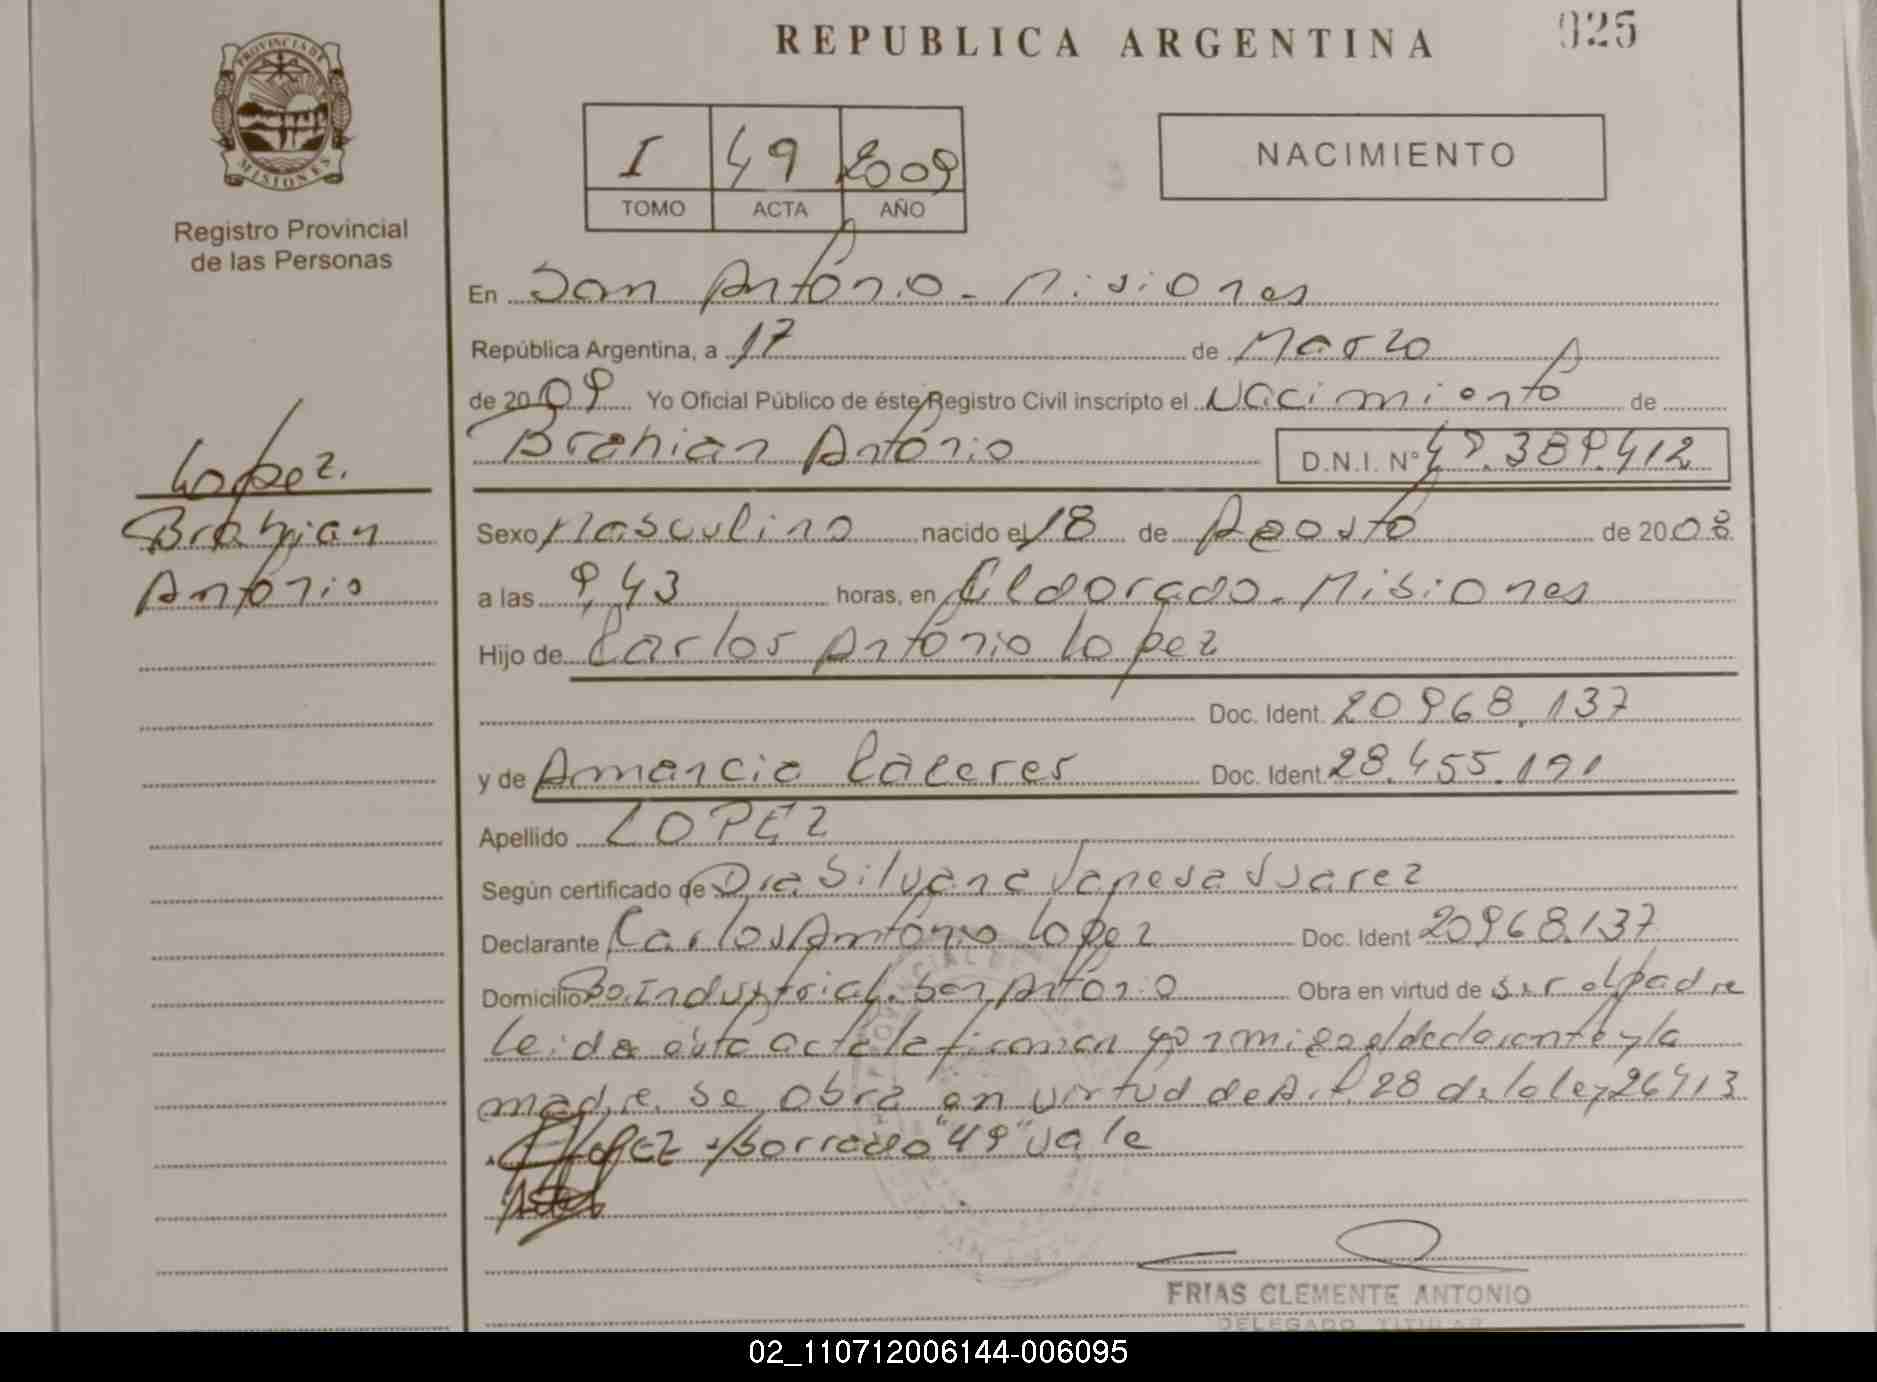 REPUBLICA ARGENTINA
025
PROVINCIA DE
MISIONES
Registro Provincial
de las Personas
I 49 2009
TOMO ACTA AÑO
NACIMIENTO
En San Antonio - Misiones
República Argentina, a 17 de Marzo
de 2009 Yo Oficial Público de éste Registro Civil inscripto el Nacimiento de
Brahian Antonio D.N.I. Nº 49.389.412
Lopez.
Brahian
Antonio
Sexo Masculino nacido el 18 de Agosto de 2008
a las 9,43 horas, en Eldorado - Misiones
Hijo de Carlos Antonio Lopez
Doc. Ident. 20968.137
y de Amancia Caceres Doc. Ident. 28.455.191
Apellido LOPEZ
Según certificado de Dra Silvana Vanesa Suarez
Declarante Carlos Antonio Lopez Doc. Ident 20968.137
Domicilio Bo. Industrial. San Antonio Obra en virtud de ser el padre
leida ésta acta la firman conmigo el declarante y la
madre. se obra en virtud de Art. 28 de la ley 26413
borrado "49" vale
FRIAS CLEMENTE ANTONIO
DELEGADO TITULAR
02_110712006144-006095